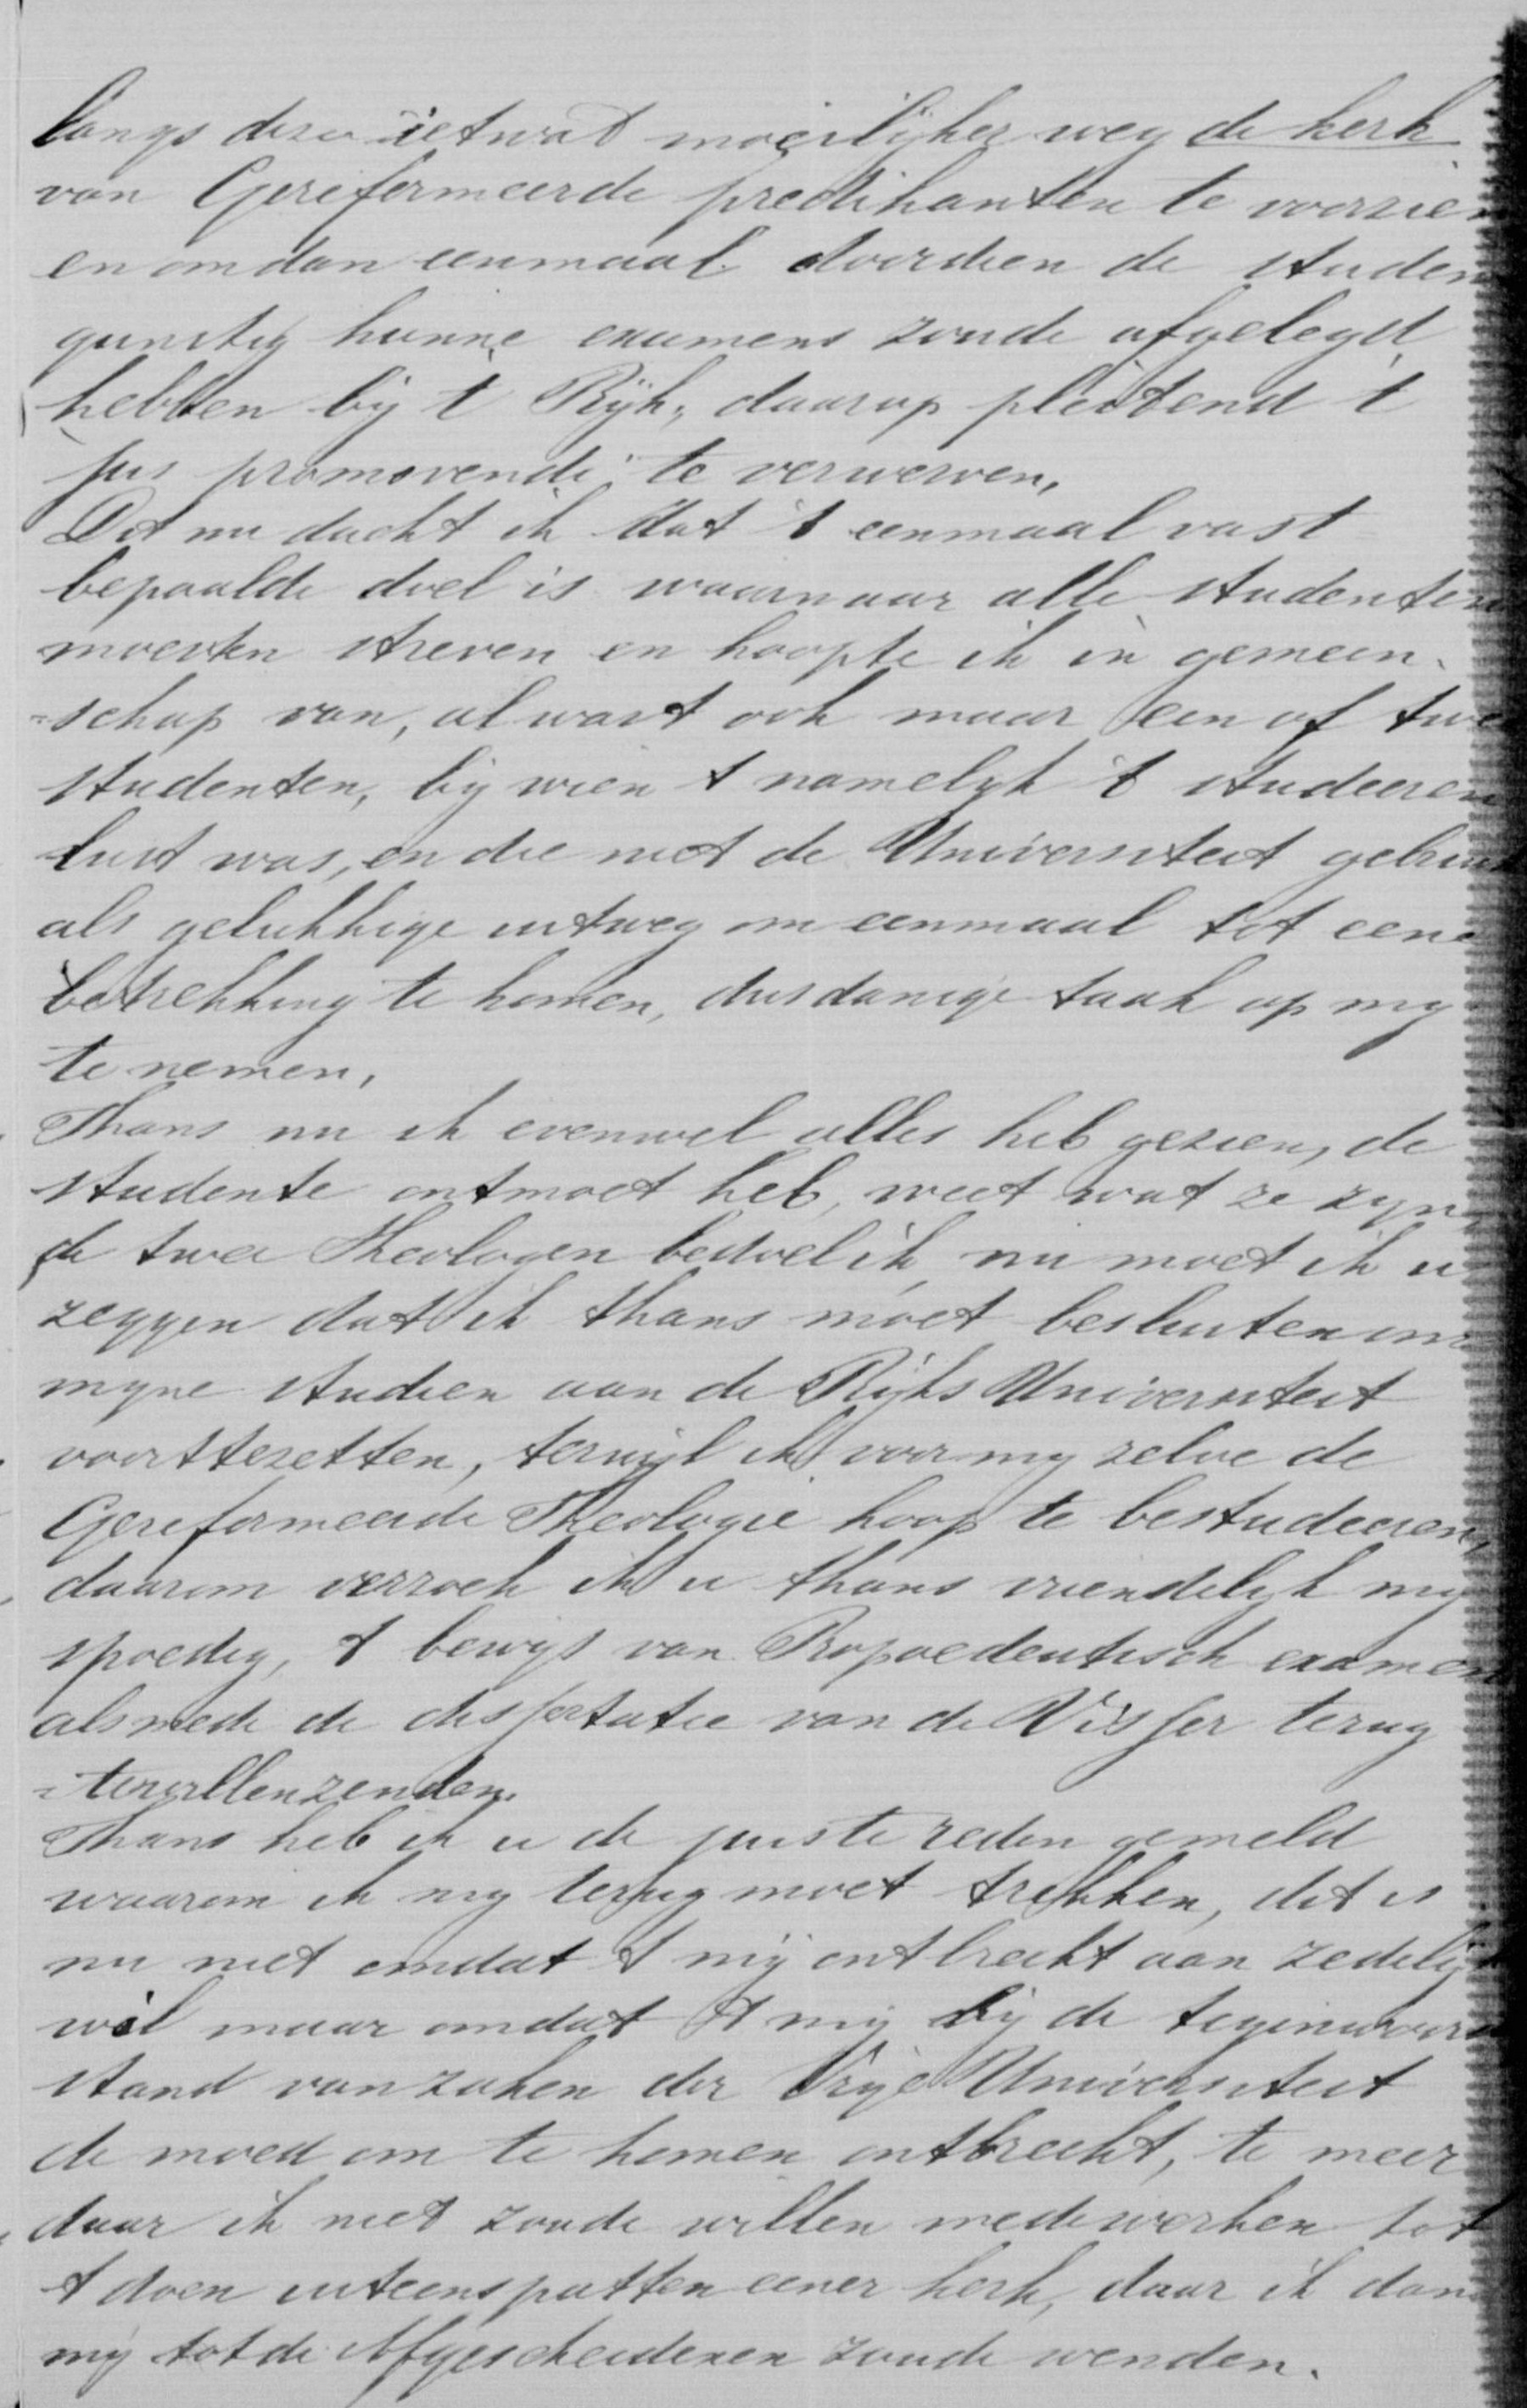 langs deze ietwat moeilijker weg de kerk
van Gereformeerde predikanten te voorzien
en om dan eenmaal doordien de studen
gunstig hunne examens zoude afgelegd
hebben bij 't Rijk, daarop pleitend 't
jus promovendi te verwerven,
Dit nu dacht ik dat 't eenmaal vast
bepaalde doel is waarnaar alle studenten
moesten streven en hoopte ik in gemeen-
=schap van, al wast ook maar een of twee
studenten, bij wien 't namelyk 't studeeren
lust was, en die niet de Universiteit
als gelukkige uitweg om eenmaal tot eene
betrekking te komen, dusdanige taak op my
te nemen,
Thans nu ik evenwel alles heb gezien, de
studente ontmoet heb, weet wat ze zyn,
de twee Theologen bedoel ik, nu moet ik u
zeggen dat ik thans moet besluiten om
myne studien aan de Rijks Universiteit
voorttezetten, terwijl ik voor my zelve de
Gereformeerde Theologie hoop te bestudeeren,
daarom verzoek ik u thans vriendelyk my
spoedig, 't bewijs van Propaedeutisch examen
alsmede de dissertatie van de Visser terug
=tewillenzenden.
Thans heb ik u de juiste reden gemeld
waarom ik my terug moet trekken, dit is
nu niet omdat 't mij ontbreekt aan zedelijk
wil maar omdat 't mij bij de tegenwoord
stand van zaken der Vrije Universiteit
de moed om te komen ontbreekt, te meer
daar ik niet zoude willen medewerken tot
't doen uiteenspatten eener kerk, daar ik dan
mij tot de Afgescheidenen zoude wenden.